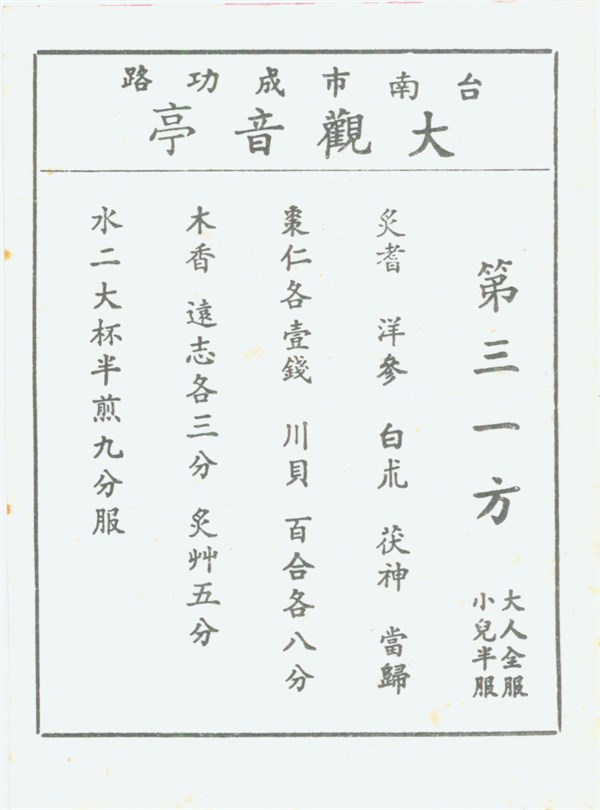 台南市成功路
大觀音亭
第三一方
大人全服
小兒半服
炙耆 洋參 白朮 茯神 當歸
棗仁各壹錢 川貝 百合各八分
木香 遠志各三分 炙艸五分
水二大杯半煎九分服